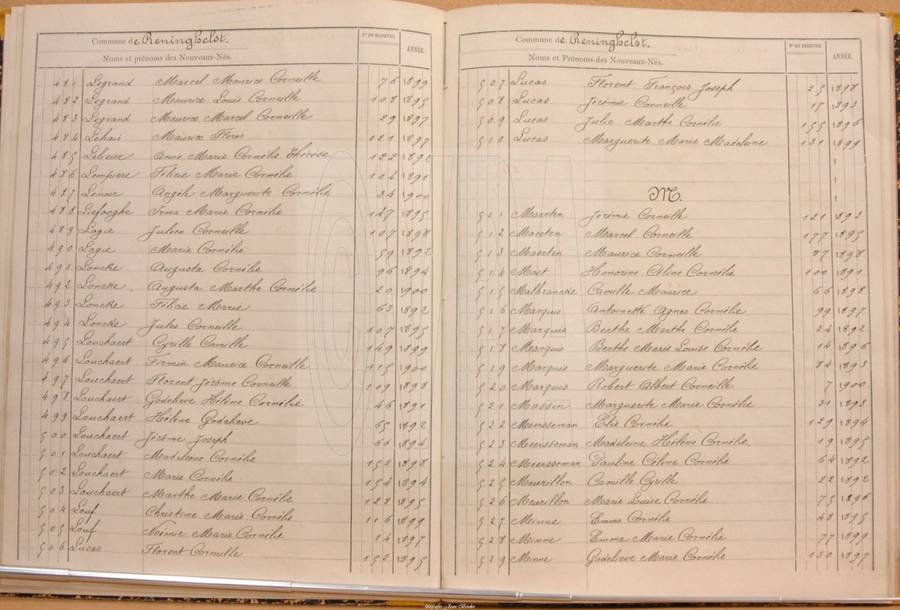 Commune de Reninghelst.
N° DU REGISTRE.
ANNÉE.
Noms et prénoms des Nouveaux-Nés.
481 Legrand Marcel Maurice Corneille 76 1899
482 Legrand Maurice Louis Corneille 108 1895
483 Legrand Maurice Marcel Corneille 29 1897
484 Lehair Maurice Floris 121 1897
485 Lelieur Anne Marie Cornélie Thérèse 122 1892
486 Lempiere Félicie Marie Cornélie 104 1891
487 Lenoir Angèle Marguerite Cornélie 34 1900
488 Liefooghe Irma Marie Cornélie 147 1895
489 Logie Julien Corneille 107 1898
490 Logie Marie Cornélie 59 1892
491 Loncke Augusta Cornélie 96 1894
492 Loncke Augusta Marthe Cornélie 20 1900
493 Loncke Félicie Marie 63 1892
494 Loncke Jules Corneille 107 1895
495 Louchaert Cyrille Camille 149 1899
496 Louchaert Firmin Maurice Corneille 115 1900
497 Louchaert Florent Jérôme Corneille 109 1898
498 Louchaert Godelieve Hélène Cornélie 46 1891
499 Louchaert Hélène Godelieve 65 1892
500 Louchaert Jérôme Joseph 66 1894
501 Louchaert Madeleine Cornélie 152 1898
502 Louchaert Marie Cornélie 154 1894
503 Louchaert Marthe Marie Cornélie 128 1895
504 Louf Christine Marie Cornélie 116 1899
505 Louf Noémie Marie Cornélie 14 1897
506 Lucas Florent Corneille 152 1895
Commune de Reninghelst.
N° DU REGISTRE.
ANNÉE.
Noms et Prénoms des Nouveaux-Nés.
507 Lucas Florent François Joseph 25 1898
508 Lucas Jérémie Corneille 17 1893
509 Lucas Julie Marthe Cornélie 155 1896
510 Lucas Marguerite Marie Madeleine 131 1899
M.
511 Maerten Jérôme Corneille 121 1893
512 Maerten Marcel Corneille 177 1895
513 Maerten Maurice Corneille 87 1898
514 Maes Honorine Céline Cornélie 100 1891
515 Malbrancke Camille Maurice 66 1898
516 Marquis Antoinette Agnes Cornélie 99 1897
517 Marquis Berthe Marthe Cornélie 24 1892
518 Marquis Berthe Marie Louise Cornélie 14 1896
519 Marquis Marguerite Marie Cornélie 84 1893
520 Marquis Robert Albert Corneille 7 1900
521 Massin Marguerite Marie Cornélie 31 1893
522 Meersseman Elie Cornélie 129 1894
523 Meersseman Madeleine Hélène Cornélie 19 1895
524 Meersseman Pauline Céline Cornélie 64 1892
525 Meurillon Camille Cyrille 22 1892
526 Meurillon Marie Louise Cornélie 75 1896
527 Minne Emma Cornélie 48 1895
528 Minne Emma Marie Cornélie 77 1899
529 Minne Godelieve Marie Cornélie 130 1897